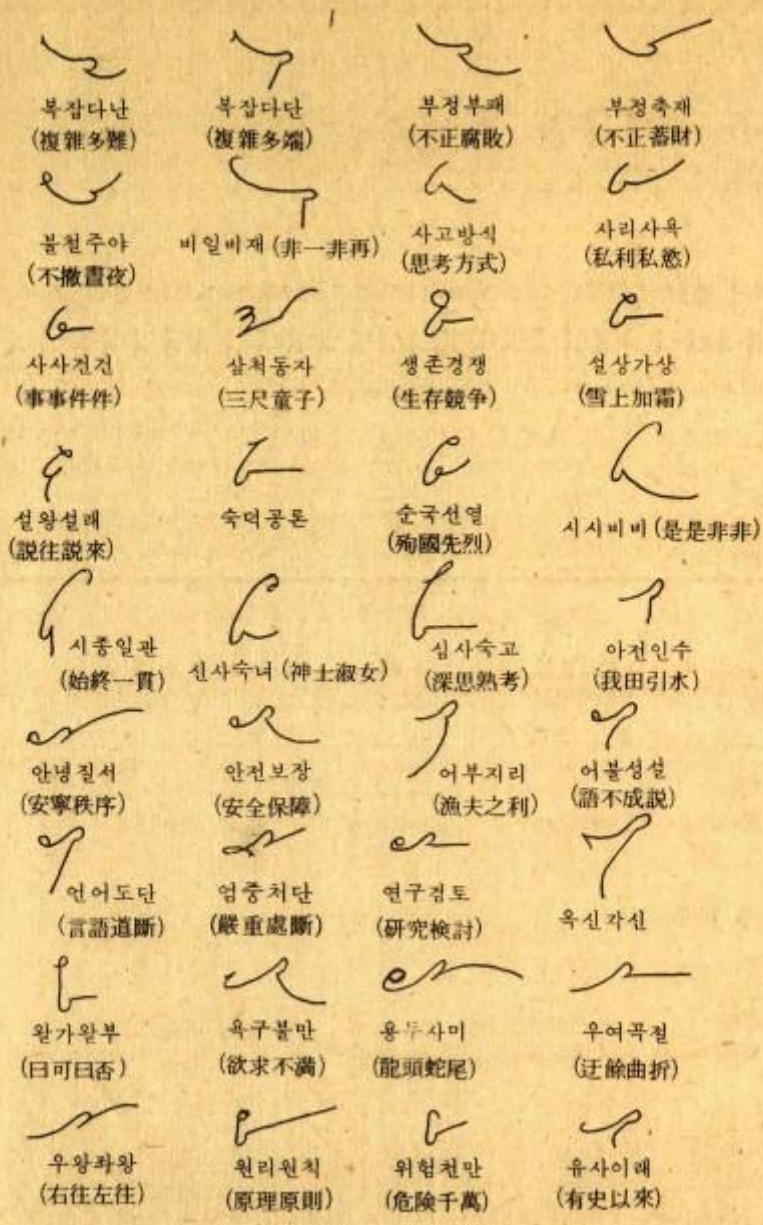 복잡다난
(複雜多難)
복잡다단
(複雜多端)
부정부패
(不正腐敗)
부정축재
(不正蓄財)
불철주야
(不撤晝夜)
비일비재 (非一非再)
사고방식
(思考方式)
사리사욕
(私利私慾)
사사건건
(事事件件)
삼척동자
(三尺童子)
생존경쟁
(生存競争)
설상가상
(雪上加霜)
설왕설래
(説往説來)
숙덕공론
순국선열
(殉國先烈)
시시비비 (是是非非)
시종일관
(始終一貫)
신사숙녀 (神士淑女)
심사숙고
(深思熟考)
아전인수
(我田引水)
안녕질서
(安寧秩序)
안전보장
(安全保障)
어부지리
(漁夫之利)
어불성설
(語不成説)
언어도단
(言語道斷)
엄중처단
(嚴重處斷)
연구검토
(研究検討)
옥신각신
왈가왈부
(曰可曰否)
욕구불만
(欲求不滿)
용두사미
(龍頭蛇尾)
우여곡절
(迂餘曲折)
우왕좌왕
(右往左往)
원리원칙
(原理原則)
위험천만
(危険千萬)
유사이래
(有史以來)